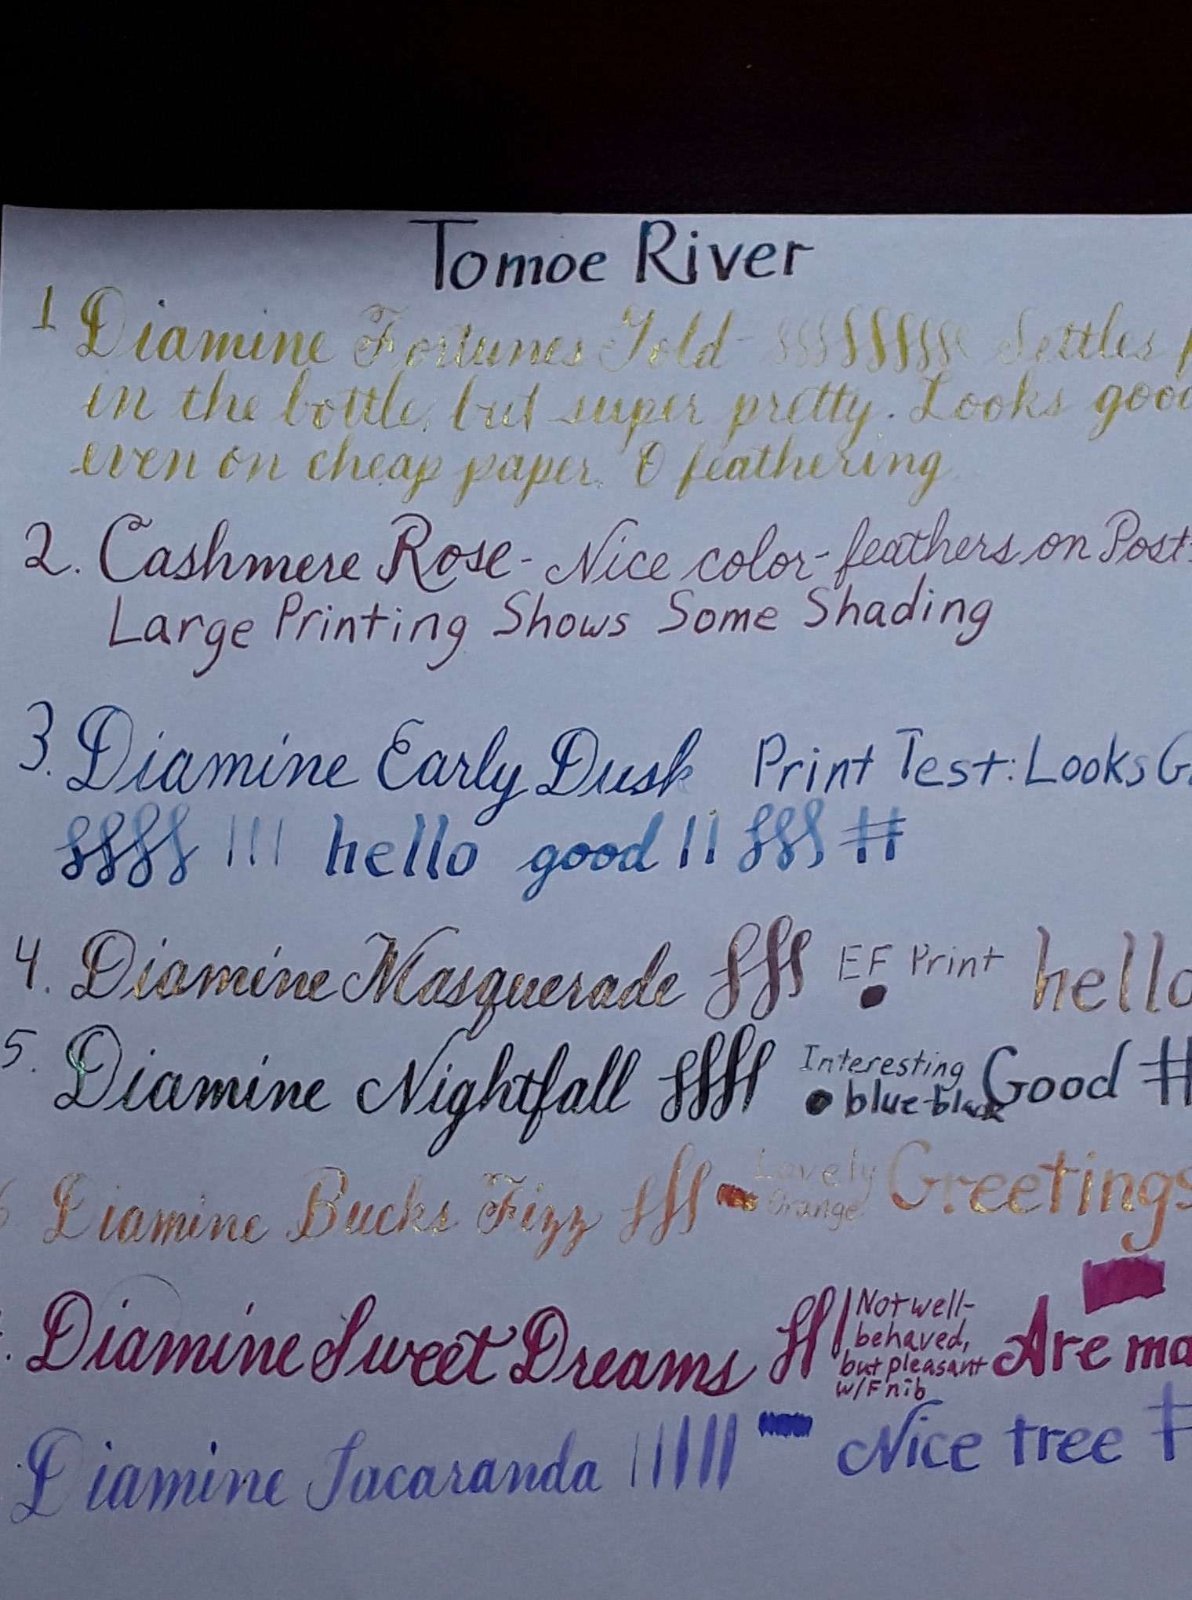 Tomoe River
1 Diamine Fortunes Told - Settles
in the bottle, but super pretty. Looks good
even on cheap paper. 0 feathering
2. Cashmere Rose - Nice color - feathers on Post-
Large Printing Shows Some Shading
3. Diamine Early Dusk Print Test: Looks G
!!! hello good !! #
4. Diamine Masquerade EF Print hello
5. Diamine Nightfall Interesting blue-black Good #
6 Diamine Bucks Fizz Lovely Orange Greetings
Diamine Sweet Dreams Not well-
behaved,
but pleasant
w/F nib
Are ma
Diamine Jacaranda Nice tree #